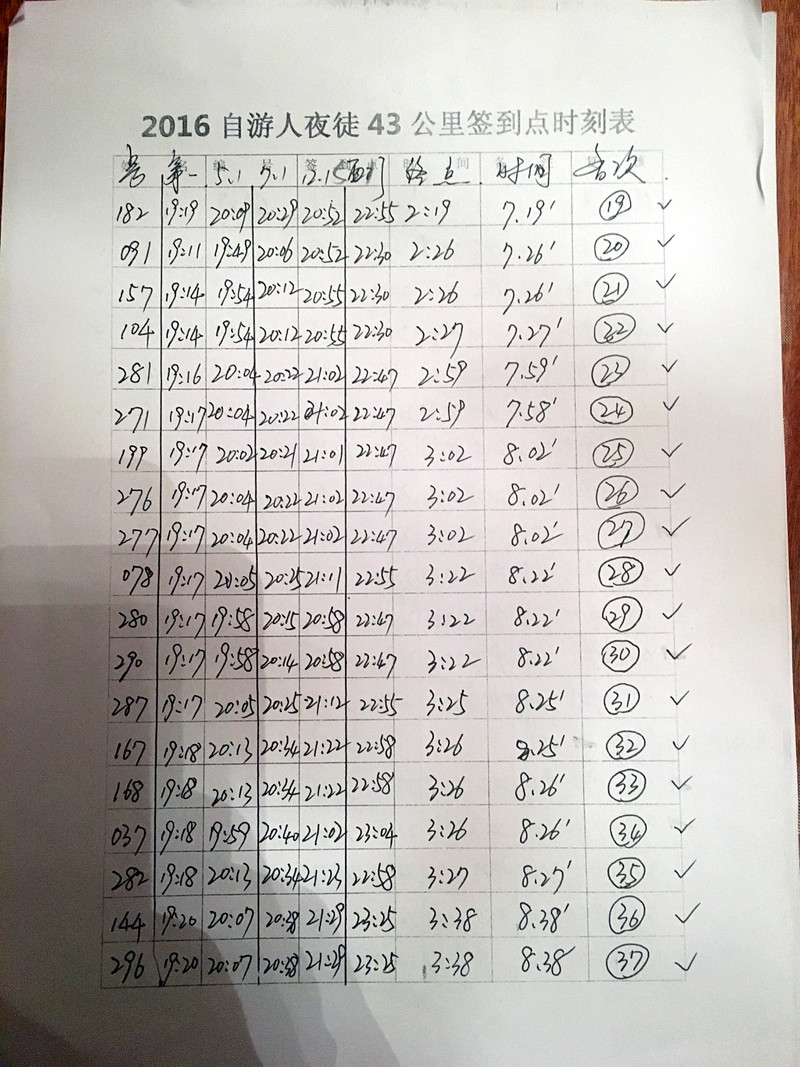 2016 自游人夜徒 43 公里签到点时刻表
号 第一 5.1 9.1 13.15 西门 终点 时间 名次
182 19:19 20:09 20:29 20:52 22:55 2:19 7.19' 19 ✓
091 19:11 19:49 20:06 20:52 22:30 2:26 7.26' 20 ✓
157 19:14 19:54 20:12 20:55 22:30 2:26 7.26' 21 ✓
104 19:14 19:54 20:12 20:55 22:30 2:27 7.27' 22 ✓
281 19:16 20:04 20:22 21:02 22:47 2:59 7.59' 23 ✓
271 19:17 20:04 20:22 21:02 22:47 2:59 7.58' 24 ✓
199 19:17 20:02 20:21 21:01 22:47 3:02 8.02' 25 ✓
276 19:17 20:04 20:22 21:02 22:47 3:02 8.02' 26 ✓
277 19:17 20:04 20:22 21:02 22:47 3:02 8.02' 27 ✓
078 19:17 20:05 20:25 21:11 22:55 3:22 8.22' 28 ✓
280 19:17 19:58 20:15 20:58 22:47 3:22 8.22' 29 ✓
290 19:17 19:58 20:14 20:58 22:47 3:22 8.22' 30 ✓
287 19:17 20:05 20:25 21:12 22:55 3:25 8.25' 31 ✓
167 19:18 20:13 20:34 21:22 22:58 3:26 8.25' 32 ✓
168 19:18 20:13 20:34 21:22 22:58 3:26 8.26' 33 ✓
037 19:18 19:59 20:40 21:02 23:04 3:26 8.26' 34 ✓
282 19:18 20:13 20:34 21:23 22:58 3:27 8.27' 35 ✓
144 19:20 20:07 20:38 21:29 23:25 3:38 8.38' 36 ✓
296 19:20 20:07 20:38 21:29 23:25 3:38 8.38' 37 ✓